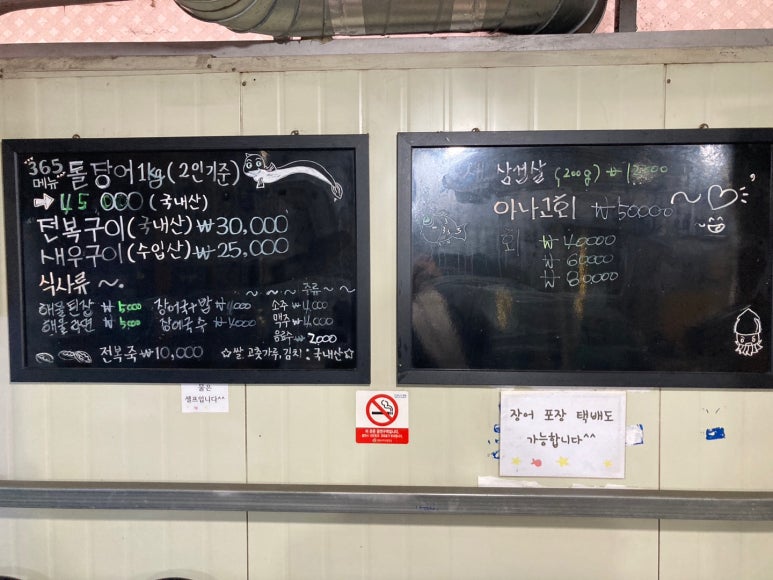 365 메뉴 돌 당어 1kg (2인기준)
45,000 (국내산)
전복구이 (국내산) ₩30,000
새우구이 (수입산) ₩25,000
식사류 ~.
~ ~ ~ 주류 ~ ~
해물된장 ₩5000 장어국+밥 ₩4000 소주 ₩4,000
해물라면 ₩5000 장어국수 ₩4000 맥주 ₩4,000
음료수 ₩2000
전복죽 ₩10,000 ☆쌀, 고춧가루, 김치: 국내산☆
삼겹살 (200g)
아나고회 ₩50000
회 ₩40000
₩60000
₩80000
물은
셀프입니다^^
장어 포장 택배도
가능합니다^^